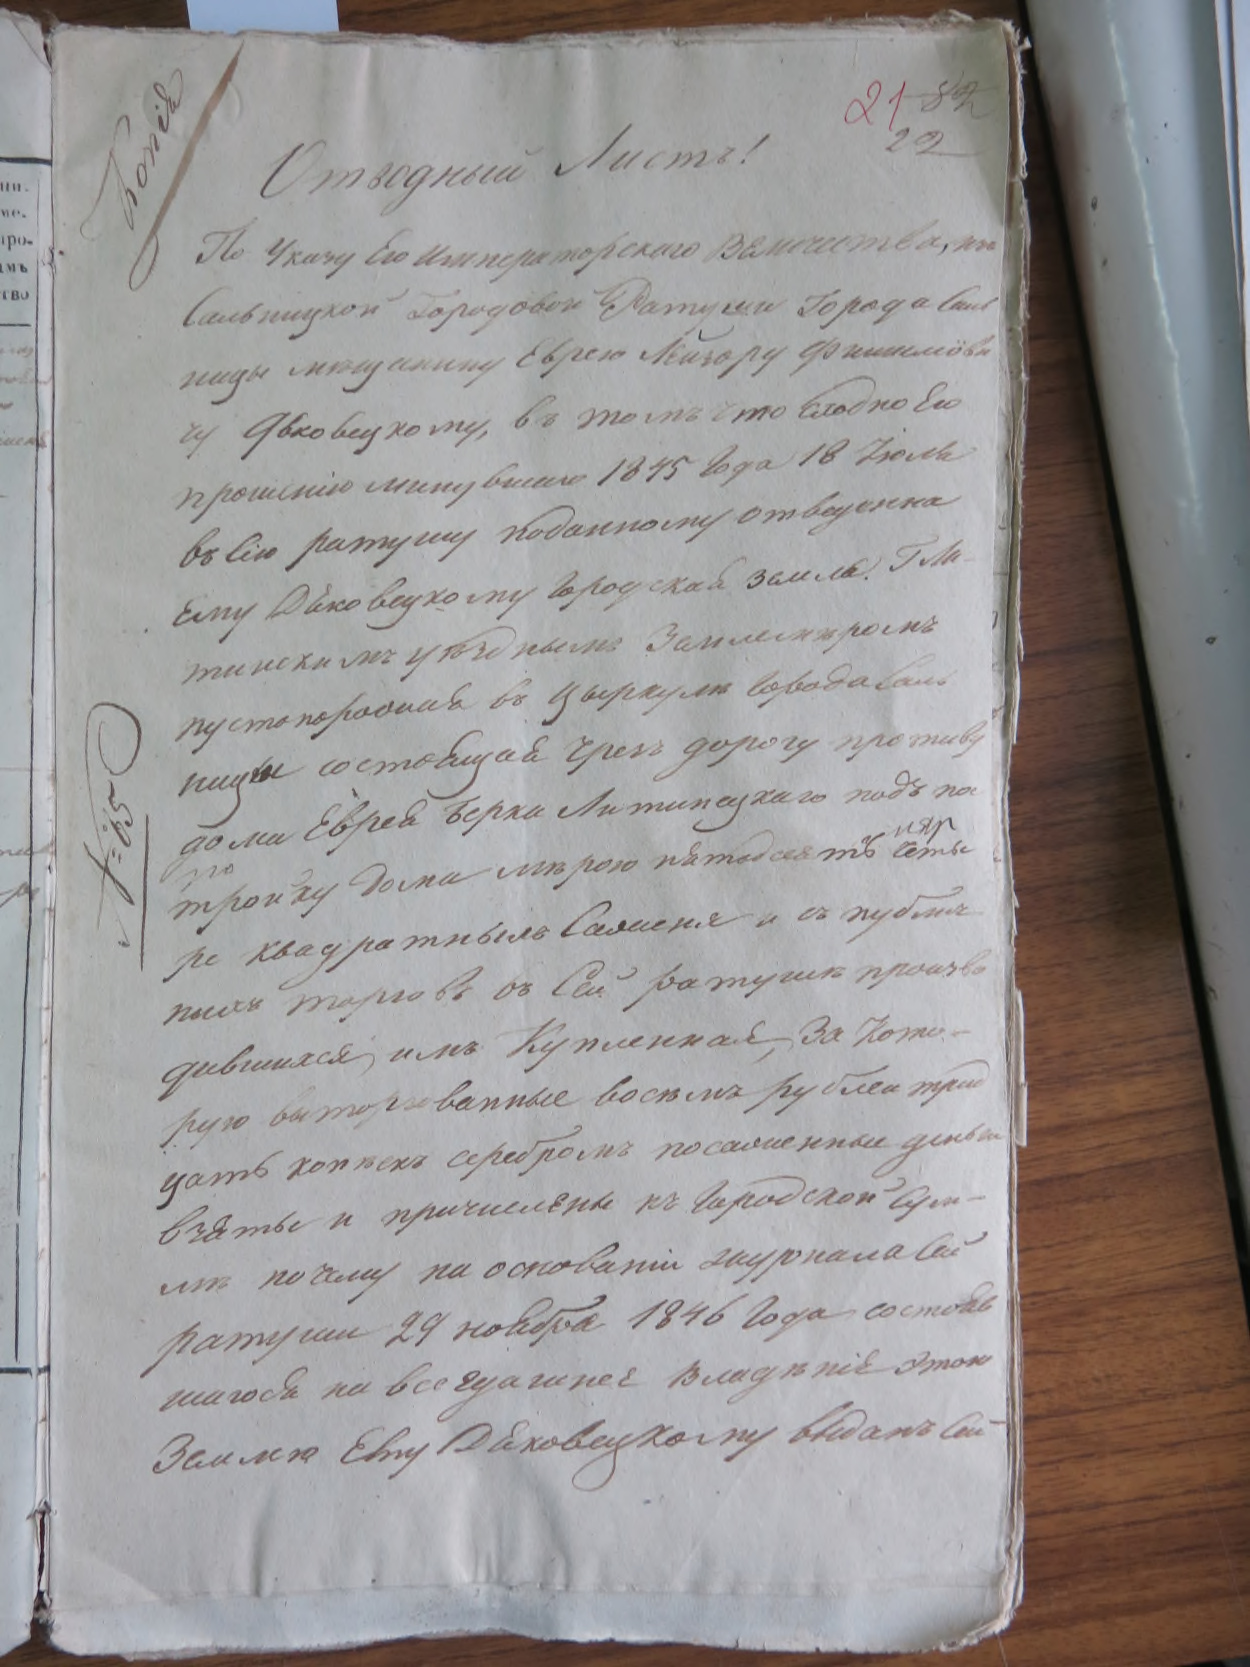 Копія
21 82
22
Отводный Листъ!
По Указу Его Императорскаго Величества, изъ
Сальницкой Городовой Ратуши Города Саль
ницы мещанину Еврею Лейзору Фишилёви
чу Яковецкому, въ томъ что сходно Его
прошенію минувшаго 1845 Года 18 Іюля
въ сію ратушу поданному отведенна
Ему Дяковецкому Городская земля. Г Ли-
тинскимъ уезднымъ Землемеромъ
пустопорожняя въ цыркуле Города Саль
ницы состоящая чрезъ дорогу противу
дома Еврея Берка Литинецкаго подъ по
тройку дома мерою пятдесятъ четы
ре квадратныхъ Сажня и съ публич
ныхъ торговъ въ Сей ратуше произво
дившихся, имъ Купленная, За кото-
рую выторгованные восемъ рублей трид
цать копеекъ серебромъ посаженные деньги
взяты и причислены къ Городской Сум-
ме почему на основаніи журнала Сей
ратуши 29 ноября 1846 Года состояв
шагося на всегдашнее владеніе этою
Землею Ему Дяковецкому выданъ Сей
№ 65